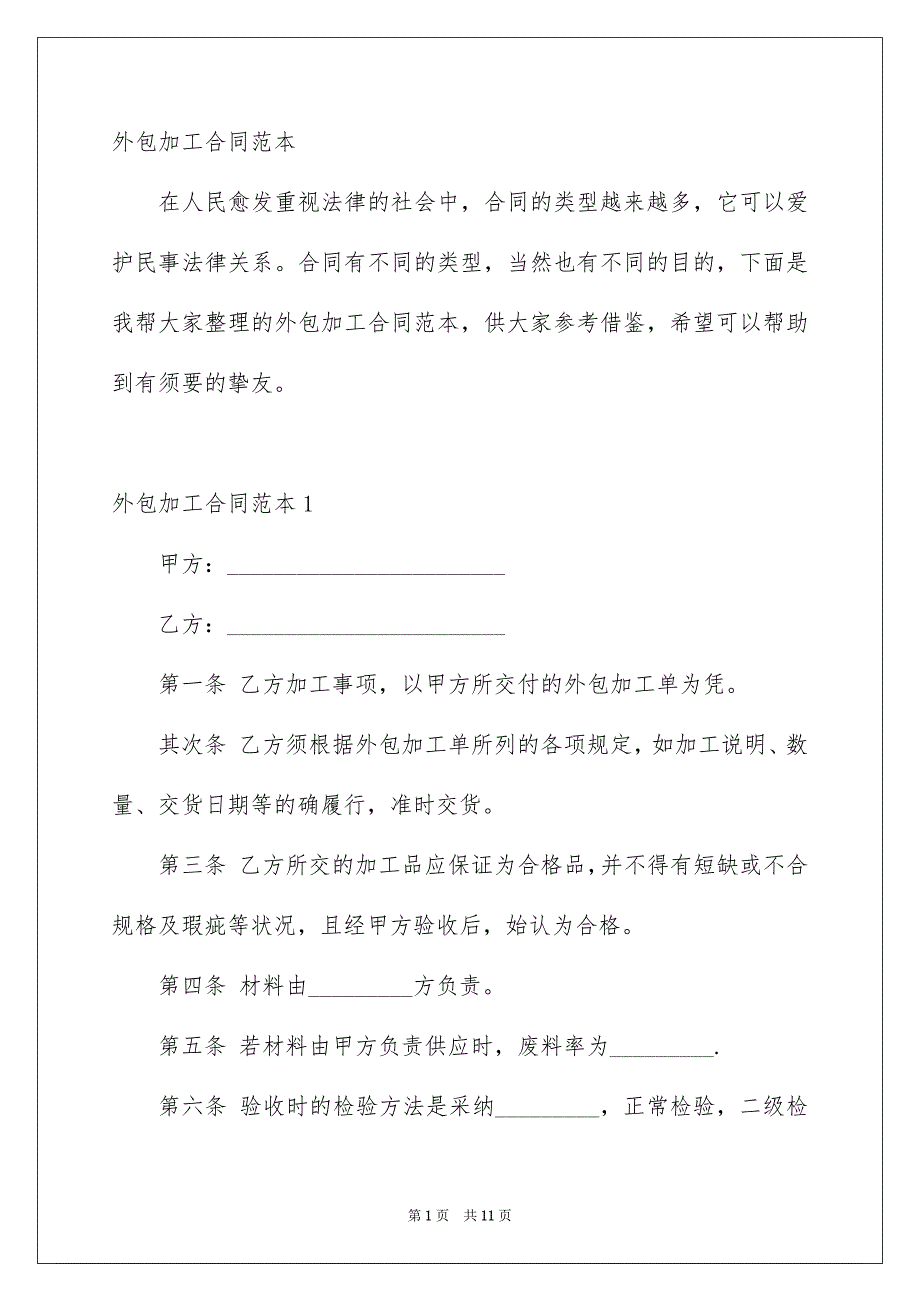 外包加工合同范本
在人民愈发重视法律的社会中，合同的类型越来越多，它可以爱
护民事法律关系。合同有不同的类型，当然也有不同的目的，下面是
我帮大家整理的外包加工合同范本，供大家参考借鉴，希望可以帮助
到有须要的挚友。
外包加工合同范本1
甲方：________________________
乙方：________________________
第一条 乙方加工事项，以甲方所交付的外包加工单为凭。
其次条 乙方须根据外包加工单所列的各项规定，如加工说明、数
量、交货日期等的确履行，准时交货。
第三条 乙方所交的加工品应保证为合格品，并不得有短缺或不合
规格及瑕疵等状况，且经甲方验收后，始认为合格。
第四条 材料由_________方负责。
第五条 若材料由甲方负责供应时，废料率为_________.
第六条 验收时的检验方法是采纳_________，正常检验，二级检
第1页 共11页